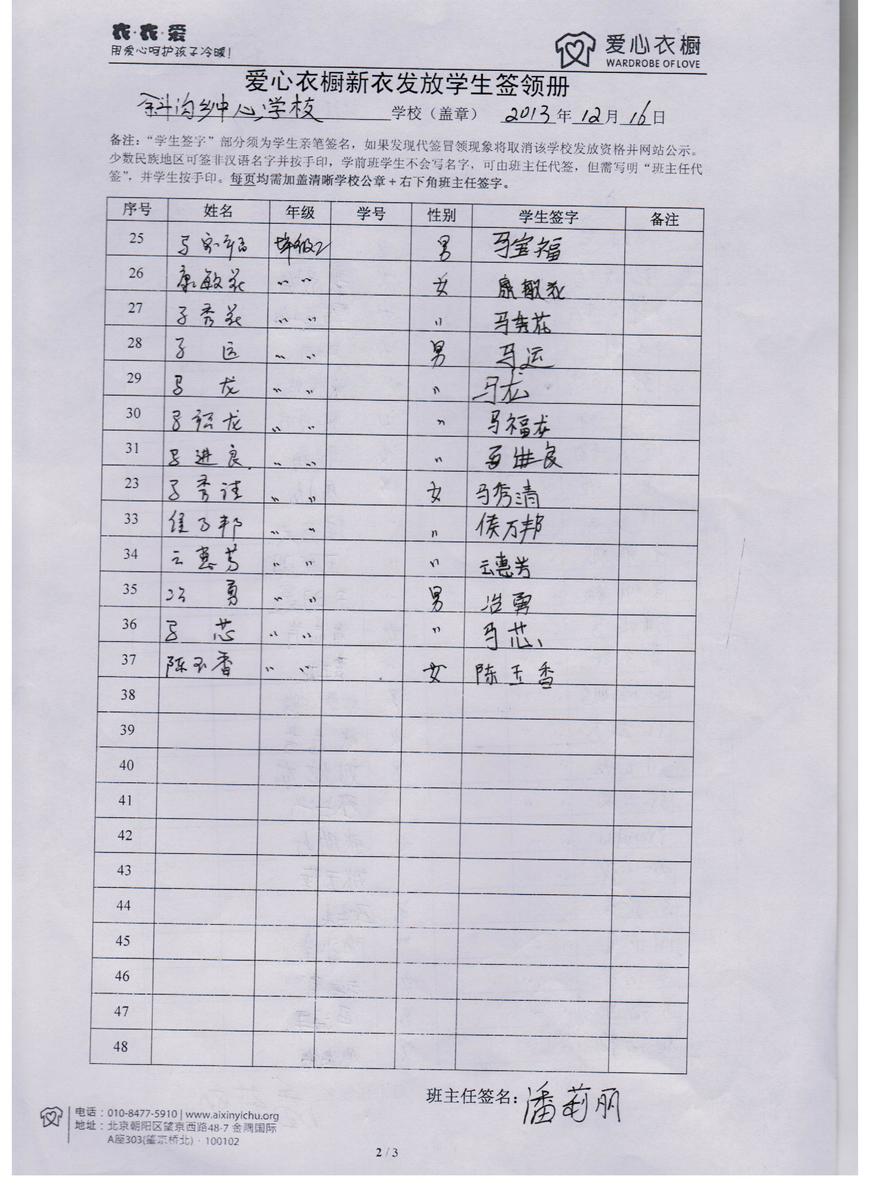 衣·衣·爱
用爱心呵护孩子冷暖!
爱心衣橱
WARDROBE OF LOVE
爱心衣橱新衣发放学生签领册
斜沟乡中心学校 学校（盖章） 2013年12月16日
备注：“学生签字”部分须为学生亲笔签名，如果发现代签冒领现象将取消该学校发放资格并网站公示。
少数民族地区可签非汉语名字并按手印，学前班学生不会写名字，可由班主任代签，但需写明“班主任代
签”，并学生按手印。每页均需加盖清晰学校公章+右下角班主任签字。
序号 姓名 年级 学号 性别 学生签字 备注
25 马宝福 男 马宝福
26 康敏花 〃 〃 女 康敏花
27 马秀花 〃 〃 〃
28 马 运 〃 〃 男 马运
29 马 龙 〃 〃 〃 马龙
30 马福龙 〃 〃 〃 马福龙
31 马进良 〃 〃 〃 马进良
23 马秀清 〃 〃 女 马秀清
33 侯万邦 〃 〃 〃 侯万邦
34 云惠芳 〃 〃 〃 云惠芳
35 冶 勇 〃 〃 男 冶勇
36 马 芯 〃 〃 〃 马芯
37 陈玉香 〃 〃 女 陈玉香
38
39
40
41
42
43
44
45
46
47
48
班主任签名：潘莉丽
电话：010-8477-5910 | www.aixinyichu.org
地址：北京朝阳区望京西路48-7 金隅国际
A座303(望京桥北) · 100102
2 / 3